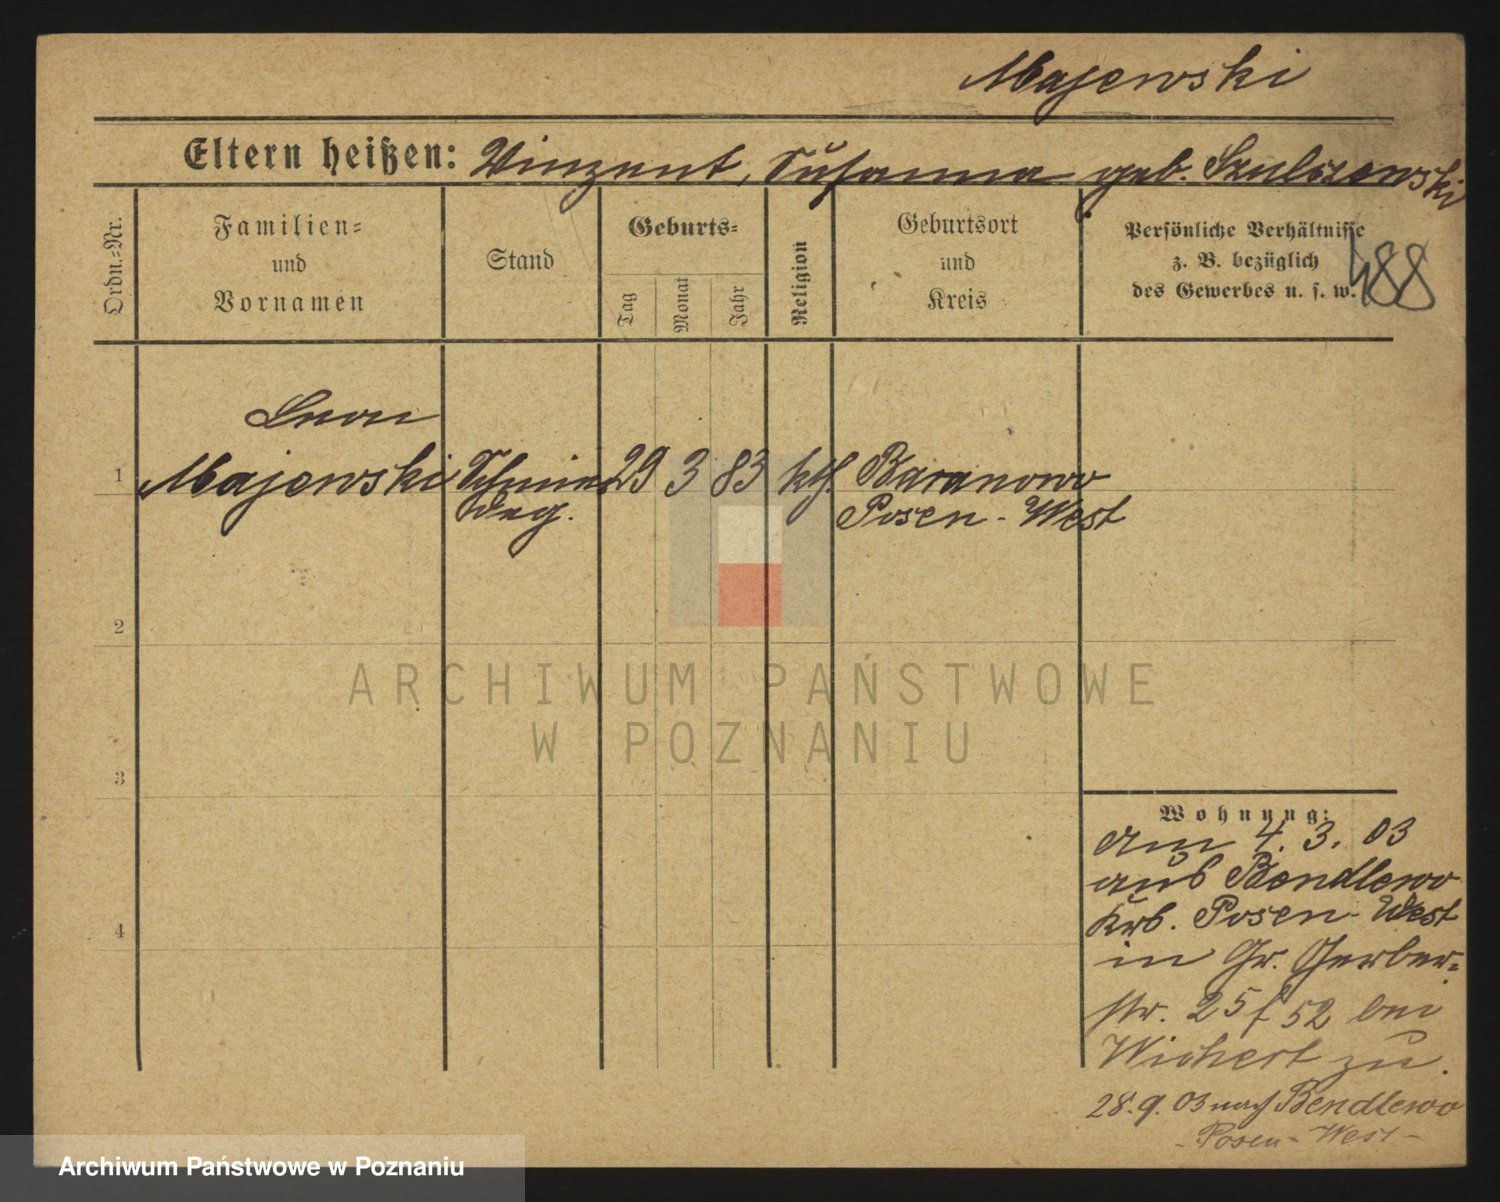 Majewski
Eltern heißen: Vinzent, Susanna geb. Szulczewski
Ordn.-Nr.
Familien-
und
Vornamen
Stand
Geburts-
Tag
Monat
Jahr
Religion
Geburtsort
und
Kreis
Persönliche Verhältnisse
z. B. bezüglich
des Gewerbes u. s. w.
488
Leon
1 Majewski Schmie 29 3 83 kth. Baranowo
deg. Posen-West
2
3
4
ARCHIWUM PAŃSTWOWE
W POZNANIU
Wohnung:
am 4. 3. 03
aus Bendlewo
Krs. Posen-West
in Gr. Gerber-
str. 25/52 bei
Wichert zu.
28.9.03 nach Bendlewo
- Posen-West -
Archiwum Państwowe w Poznaniu